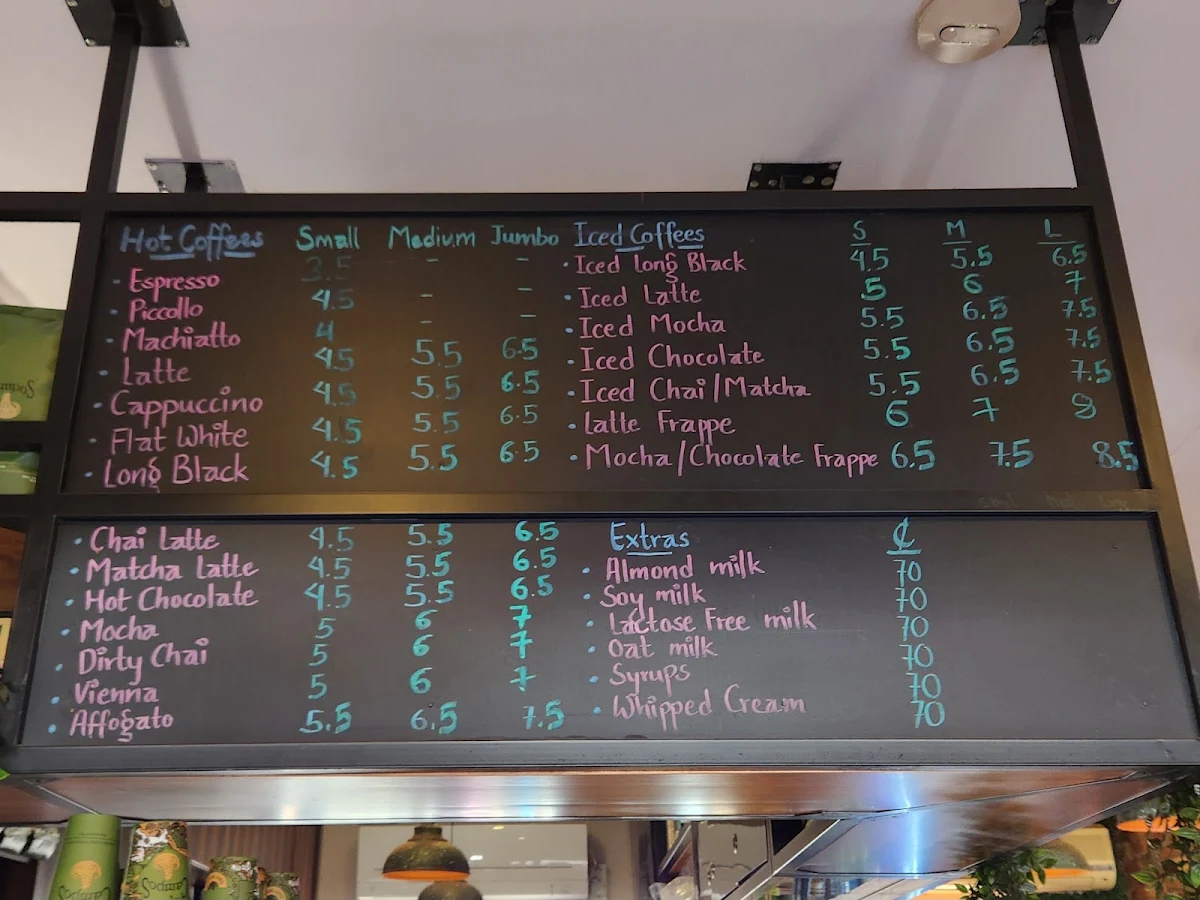 Hot Coffees Small Medium Jumbo
· Espresso 3.5 - -
· Piccollo 4.5 - -
· Machiatto 4 - -
· Latte 4.5 5.5 6.5
· Cappuccino 4.5 5.5 6.5
· Flat White 4.5 5.5 6.5
· Long Black 4.5 5.5 6.5
Iced Coffees S M L
· Iced Long Black 4.5 5.5 6.5
· Iced Latte 5 6 7
· Iced Mocha 5.5 6.5 7.5
· Iced Chocolate 5.5 6.5 7.5
· Iced Chai/Matcha 5.5 6.5 7.5
· Latte Frappe 6 7 8
· Mocha/Chocolate Frappe 6.5 7.5 8.5
· Chai Latte 4.5 5.5 6.5
· Matcha Latte 4.5 5.5 6.5
· Hot Chocolate 4.5 5.5 6.5
· Mocha 5 6 7
· Dirty Chai 5 6 7
· Vienna 5 6 7
· Affogato 5.5 6.5 7.5
Extras ₵
· Almond milk 70
· Soy milk 70
· Lactose Free milk 70
· Oat milk 70
· Syrups 70
· Whipped Cream 70